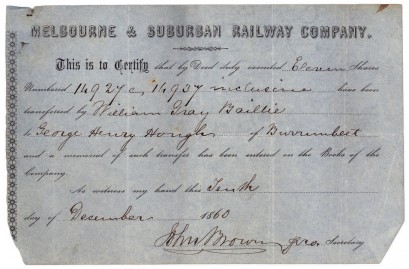 MELBOURNE & SUBURBAN RAILWAY COMPANY.
This is to Certify that by Deed duly executed Eleven Shares
Numbered 14927 14937 inclusive have been
transferred by William Gray Baillie
to George Henry of Burrumbeet
and a memorial of such transfer has been entered on the Books of the
Company.
As witness my hand this Tenth
day of December 1860
John Brown Secretary